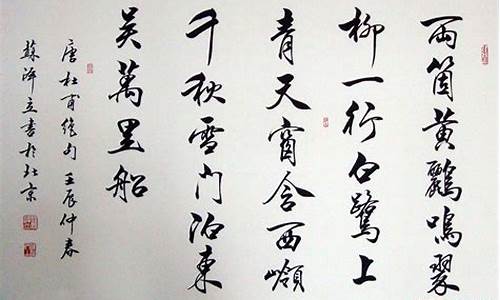 兩箇黄鸝鳴翠
柳一行白鷺上
青天窗含西嶺
千秋雪門泊東
吴萬里船
唐杜甫绝句 壬辰仲春
蘇澤立書於北京